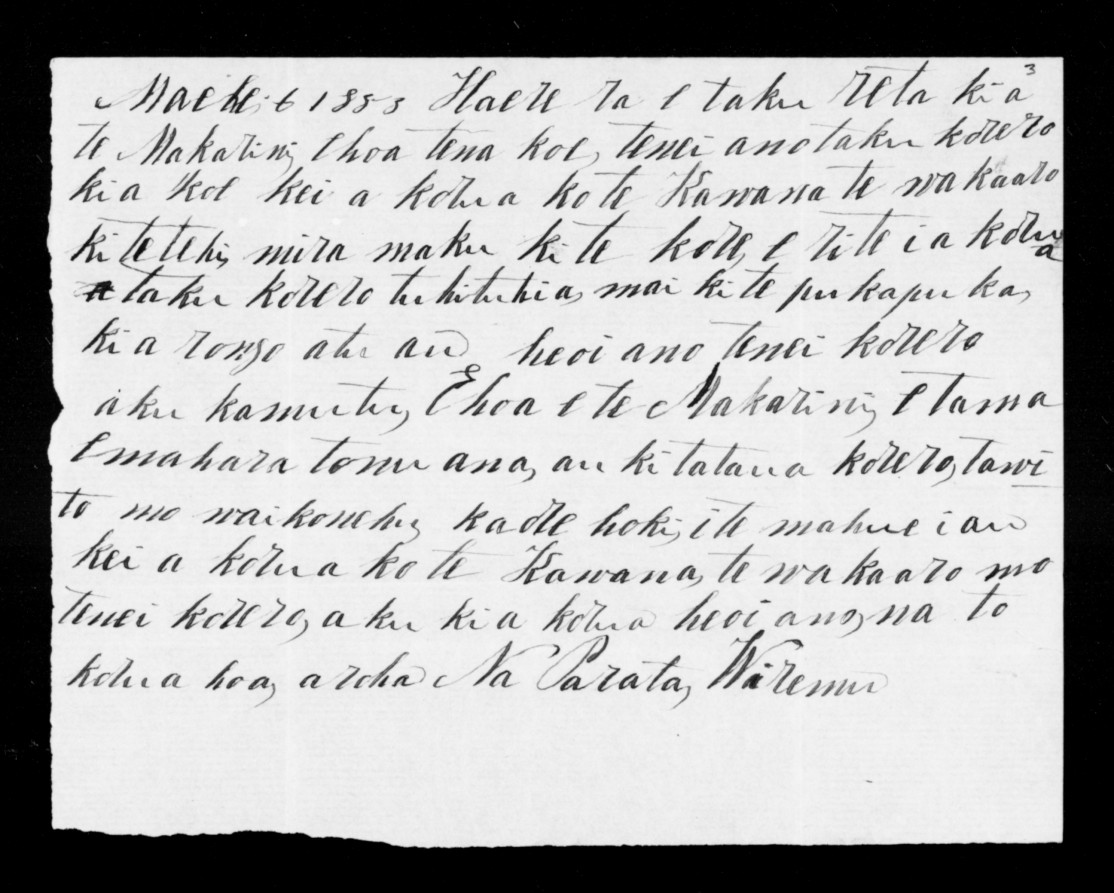 3
Maehe 6 1853 Haere ra e taku reta kia
te Makarini, Ehoa tena koe, tenei ano taku korero
kia koe kei a korua ko te Kawana te wakaaro
ki tetehi, mira maku ki te kore, e rite i a korua
taku korero tuhituhia, mai ki te pukapuka,
kia rongo atu au heoi ano tenei korero
aku kamutu, Ehoa e te Makarini, E tama
Emahara tonu ana, au ki tataua korero, tawi
to mo waikonehu, kaore hoki, i te mahue i au
kei a korua ko te Kawana, te wakaaro mo
tenei korero, aku kia korua heoi ano, na to
korua hoa, aroha Na Parata, Wiremu